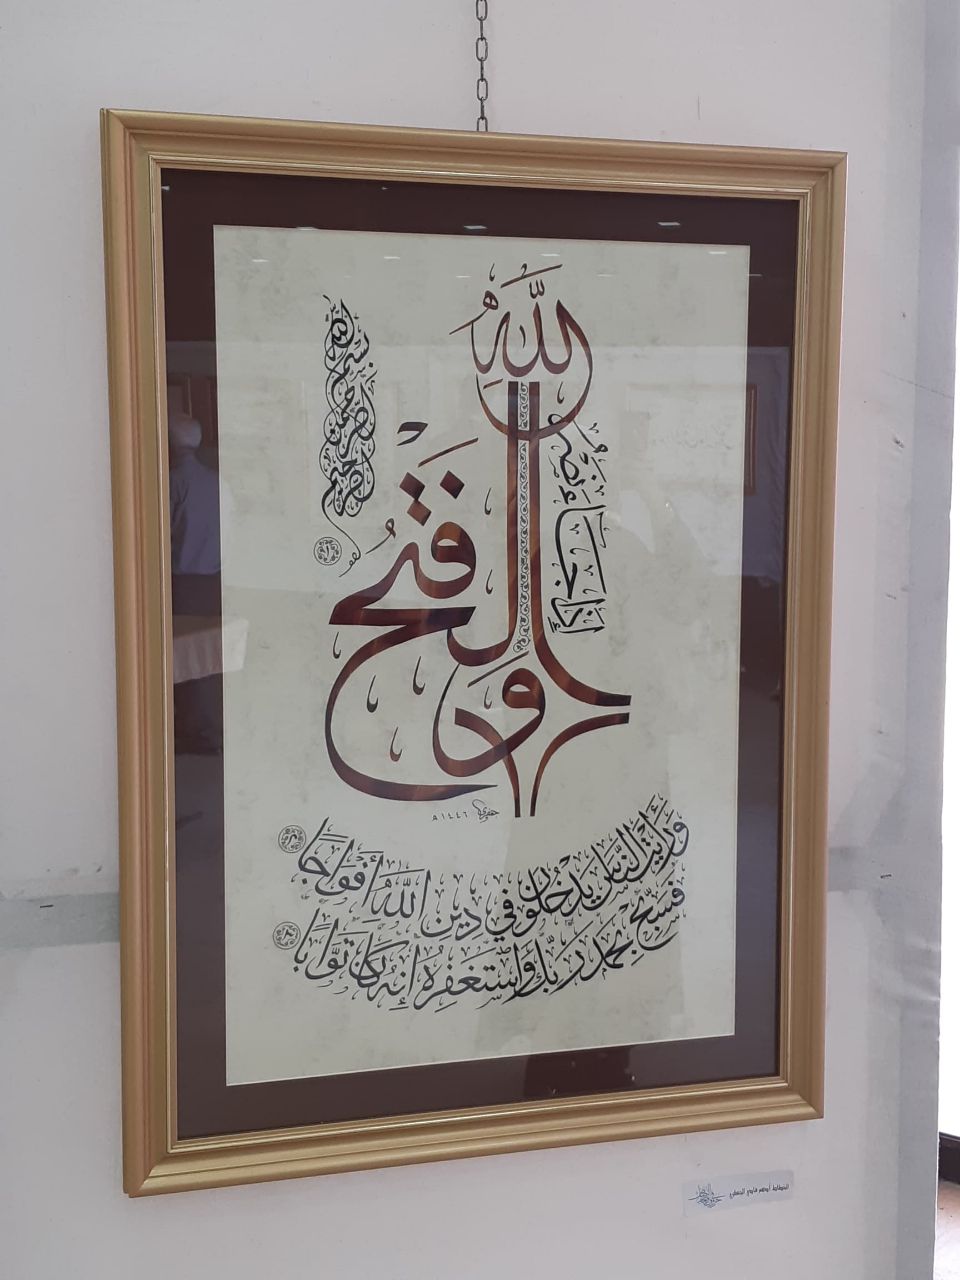 بسم الله الرحمن الرحيم
إذا جاء نصر
الله
والفتح
١٤٤٦هـ
ورأيت الناس يدخلون في دين الله أفواجا
فسبح بحمد ربك واستغفره إنه كان توابا
الخطاط أدهم فادي الجعفري